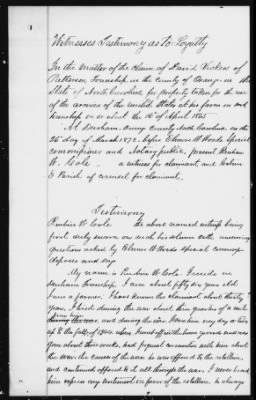 Witnesses Testimony as to Loyalty
In the Matter of the Claim of David Vickers of
Patterson Township in the County of Orange in the
State of North Carolina for property taken for the use
of the armies of the United States at his farm in said
township on or about the 16th of April 1865
At Durham, Orange County North Carolina, on the
26 day of March 1872 before Elmer W. Woods Special
commissioner and Notary public, present Reuben
W. Cole a witness for claimant, and
E Parish of counsel for claimant.
Testimony
Reuben W. Cole the above named witness being
first duly sworn on oath his solemn oath, answering
questions asked by Special commr
deposes and says
My name is Reuben W. Cole I reside in
Durham Township. I am about fifty six years old
I am a farmer. I have known the claimant about thirty
years, I lived during the war about three quarters of a mile
from him and during the war I saw him every day or two
up to the fall of 1864 when I moved off
you about three weeks, had frequent conversation with him about
the war, the causes of the war. he was opposed to the rebellion
and continued opposed to it all through the war. I never heard
him express any sentiment in favor of the rebellion. he always